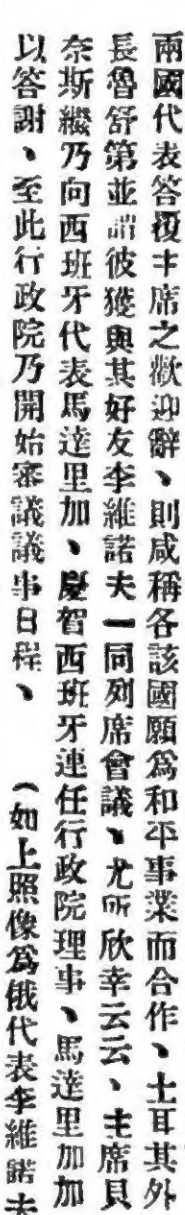 兩國代表答復主席之歡迎辭、則咸稱各該國願爲和平事業而合作、土耳其外
長魯舒第並謂彼獲與其好友李維諾夫一同列席會議、尤所欣幸云云、主席貝
奈斯繼乃向西班牙代表馬達里加、慶賀西班牙連任行政院理事、馬達里加加
以答謝、至此行政院乃開始審議議事日程、（如上照像爲俄代表李維諾夫